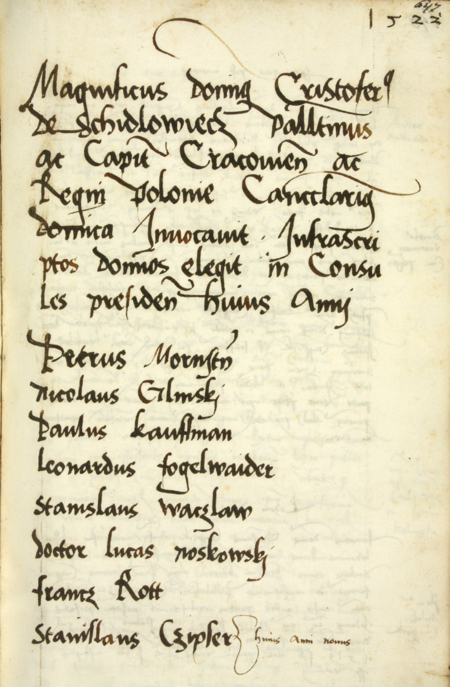 1522
Magnificus dominus Cristoferus
de Schidlowiecz Pallatinus
ac Capit Cracovien ac
Regni Polonie Cancclarius
domica Invocavit . Infrascri
ptos dominos elegit in Consu
les presiden huius Anni
Petrus Mornstyn
nicolaus Glinskj
Paulus kauffman
Leonardus fogelwaider
Stanislaus waczlaw
doctor lucas noskowskj
frantz Rott
Stanislaus Czipser huius Anni novus